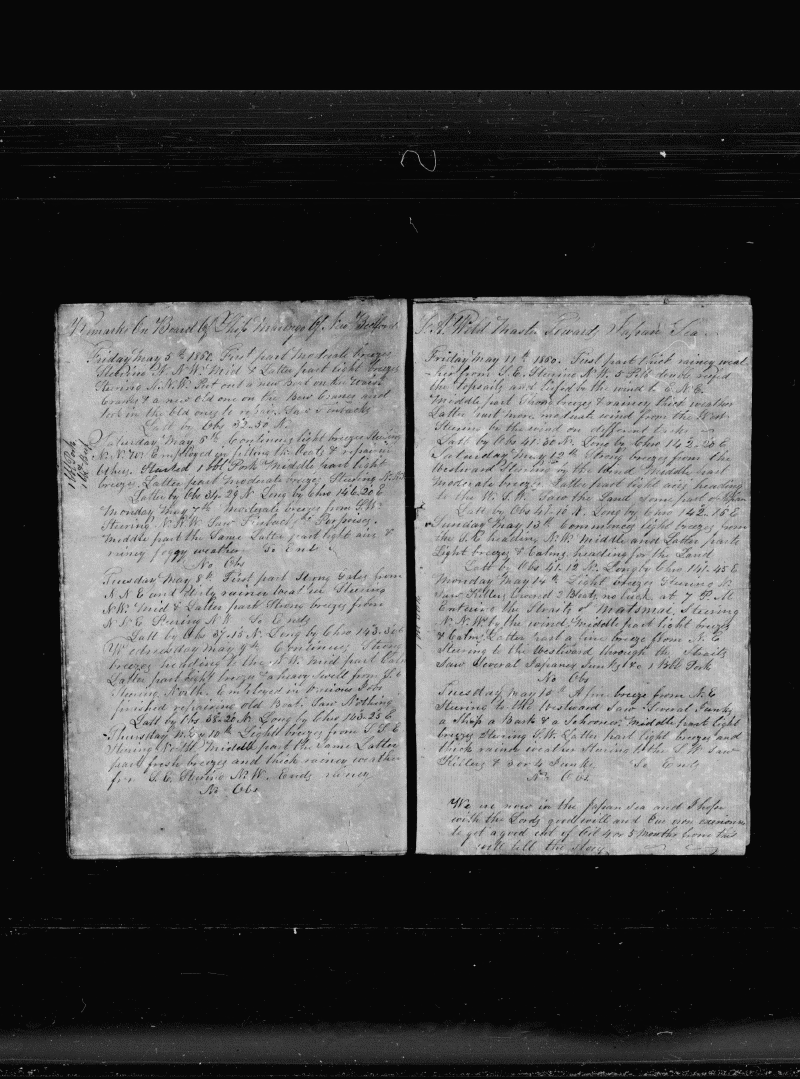 Remarks On Board of Ship Marengo Of New Bedford
Friday May 5th 1860 First part Moderate breezes
Steering N. N.W. Mid & Latter part light breezes
Steering N.N.W. Put out a new Boat on the Waist
Cranes & a new old one on the Bow Cranes and
took in the Old ones to repair. Saw
Latt by Obs 32.50 N.
1 bbl Pork
1 bbl Beef
Saturday May 5th Continues light breezes Steering
N.N.W. Employed in fitting the Boats & repairing
Others. Started 1 bbl Pork Middle part light
breezes. Latter part moderate breezes. Steering N.
Latt by Obs 34.29 N Long by Chro 146.20 E
Monday May 7th Moderate breezes from S.W.
Steering N.N.W Saw Finback & Porpoises.
Middle part the Same Latter part light airs &
rainey foggy weather So Ends
No Obs
Tuesday May 8th First part Strong Gales from
N N E and dirty rainey weather Steering
N.W. Mid & Latter part Strong breezes from
N.N.E Steering N.W. So Ends
Latt by Obs 37.15 N. Long by Chro 143.
Wednesday May 9th Continues Strong
breezes heading to the N.W. Mid part Calm
Latter part light breeze & a heavy swell from S.E
Steering North. Employed in various Jobs
finished repairing old Boat. Saw Nothing
Latt by Obs 38.20 N. Long by Chro 143.23 E
Thursday May 10th Light breezes from S S E
Steering North Middle part the Same Latter
part fresh breezes and thick rainey weather
from S.E. Steering N.W. Ends rainey
No Obs
Master Seward, Japan Sea
Friday May 11th 1860. First part thick rainey weat
-her from S.E. Steering N.W. 5 P.M. double reefed
the topsails and luffed by the wind to E.N.E.
Middle part Same breezes & rainey thick weather
Latter part more moderate wind from the West
Steering by the wind on different tacks
Latt by Obs 41.30 N. Long by Chro 142.20 E
Saturday May 12th Strong breezes from the
Westward Steering by the Wind Middle part
moderate breezes. Latter part light airs heading
to the W.S.W. Saw the Land Some part of Japan
Latt by Obs 41.10 N. Long by Chro 142.15 E
Sunday May 13th Commences light breezes from
the S.E heading N.W. middle and Latter parts
light breezes & Calms, heading for the Land
Latt by Obs 41.12 N. Long by Chro 141.45 E
Monday May 14th Light breezes Steering N.
Saw Killers, lowered 2 Boats, no luck at 7 P.M
Entering the Straits of Matsmai, Steering
N.N.W. by the wind, Middle part light breezes
& Calms, Latter part a fine breeze from N.E
Steering to the Westward through the Straits
Saw Several Japaney Junks &c 1 Bbl Pork
No Obs
Tuesday May 15th A fine breeze from N.E
Steering to the Westward Saw Several Junks,
a Ship a Bark & a Schooner, Middle part light
breezes Steering S.W. Latter part light breezes and
thick rainey weather Steering to the S.W Saw
Killers & 3 or 4 Junks So Ends
No Obs
We are now in the Japan Sea and I hope
with the Lords good will and Our own exertions
to get a good cut of Oil 4 or 5 months from this
will tell the Story